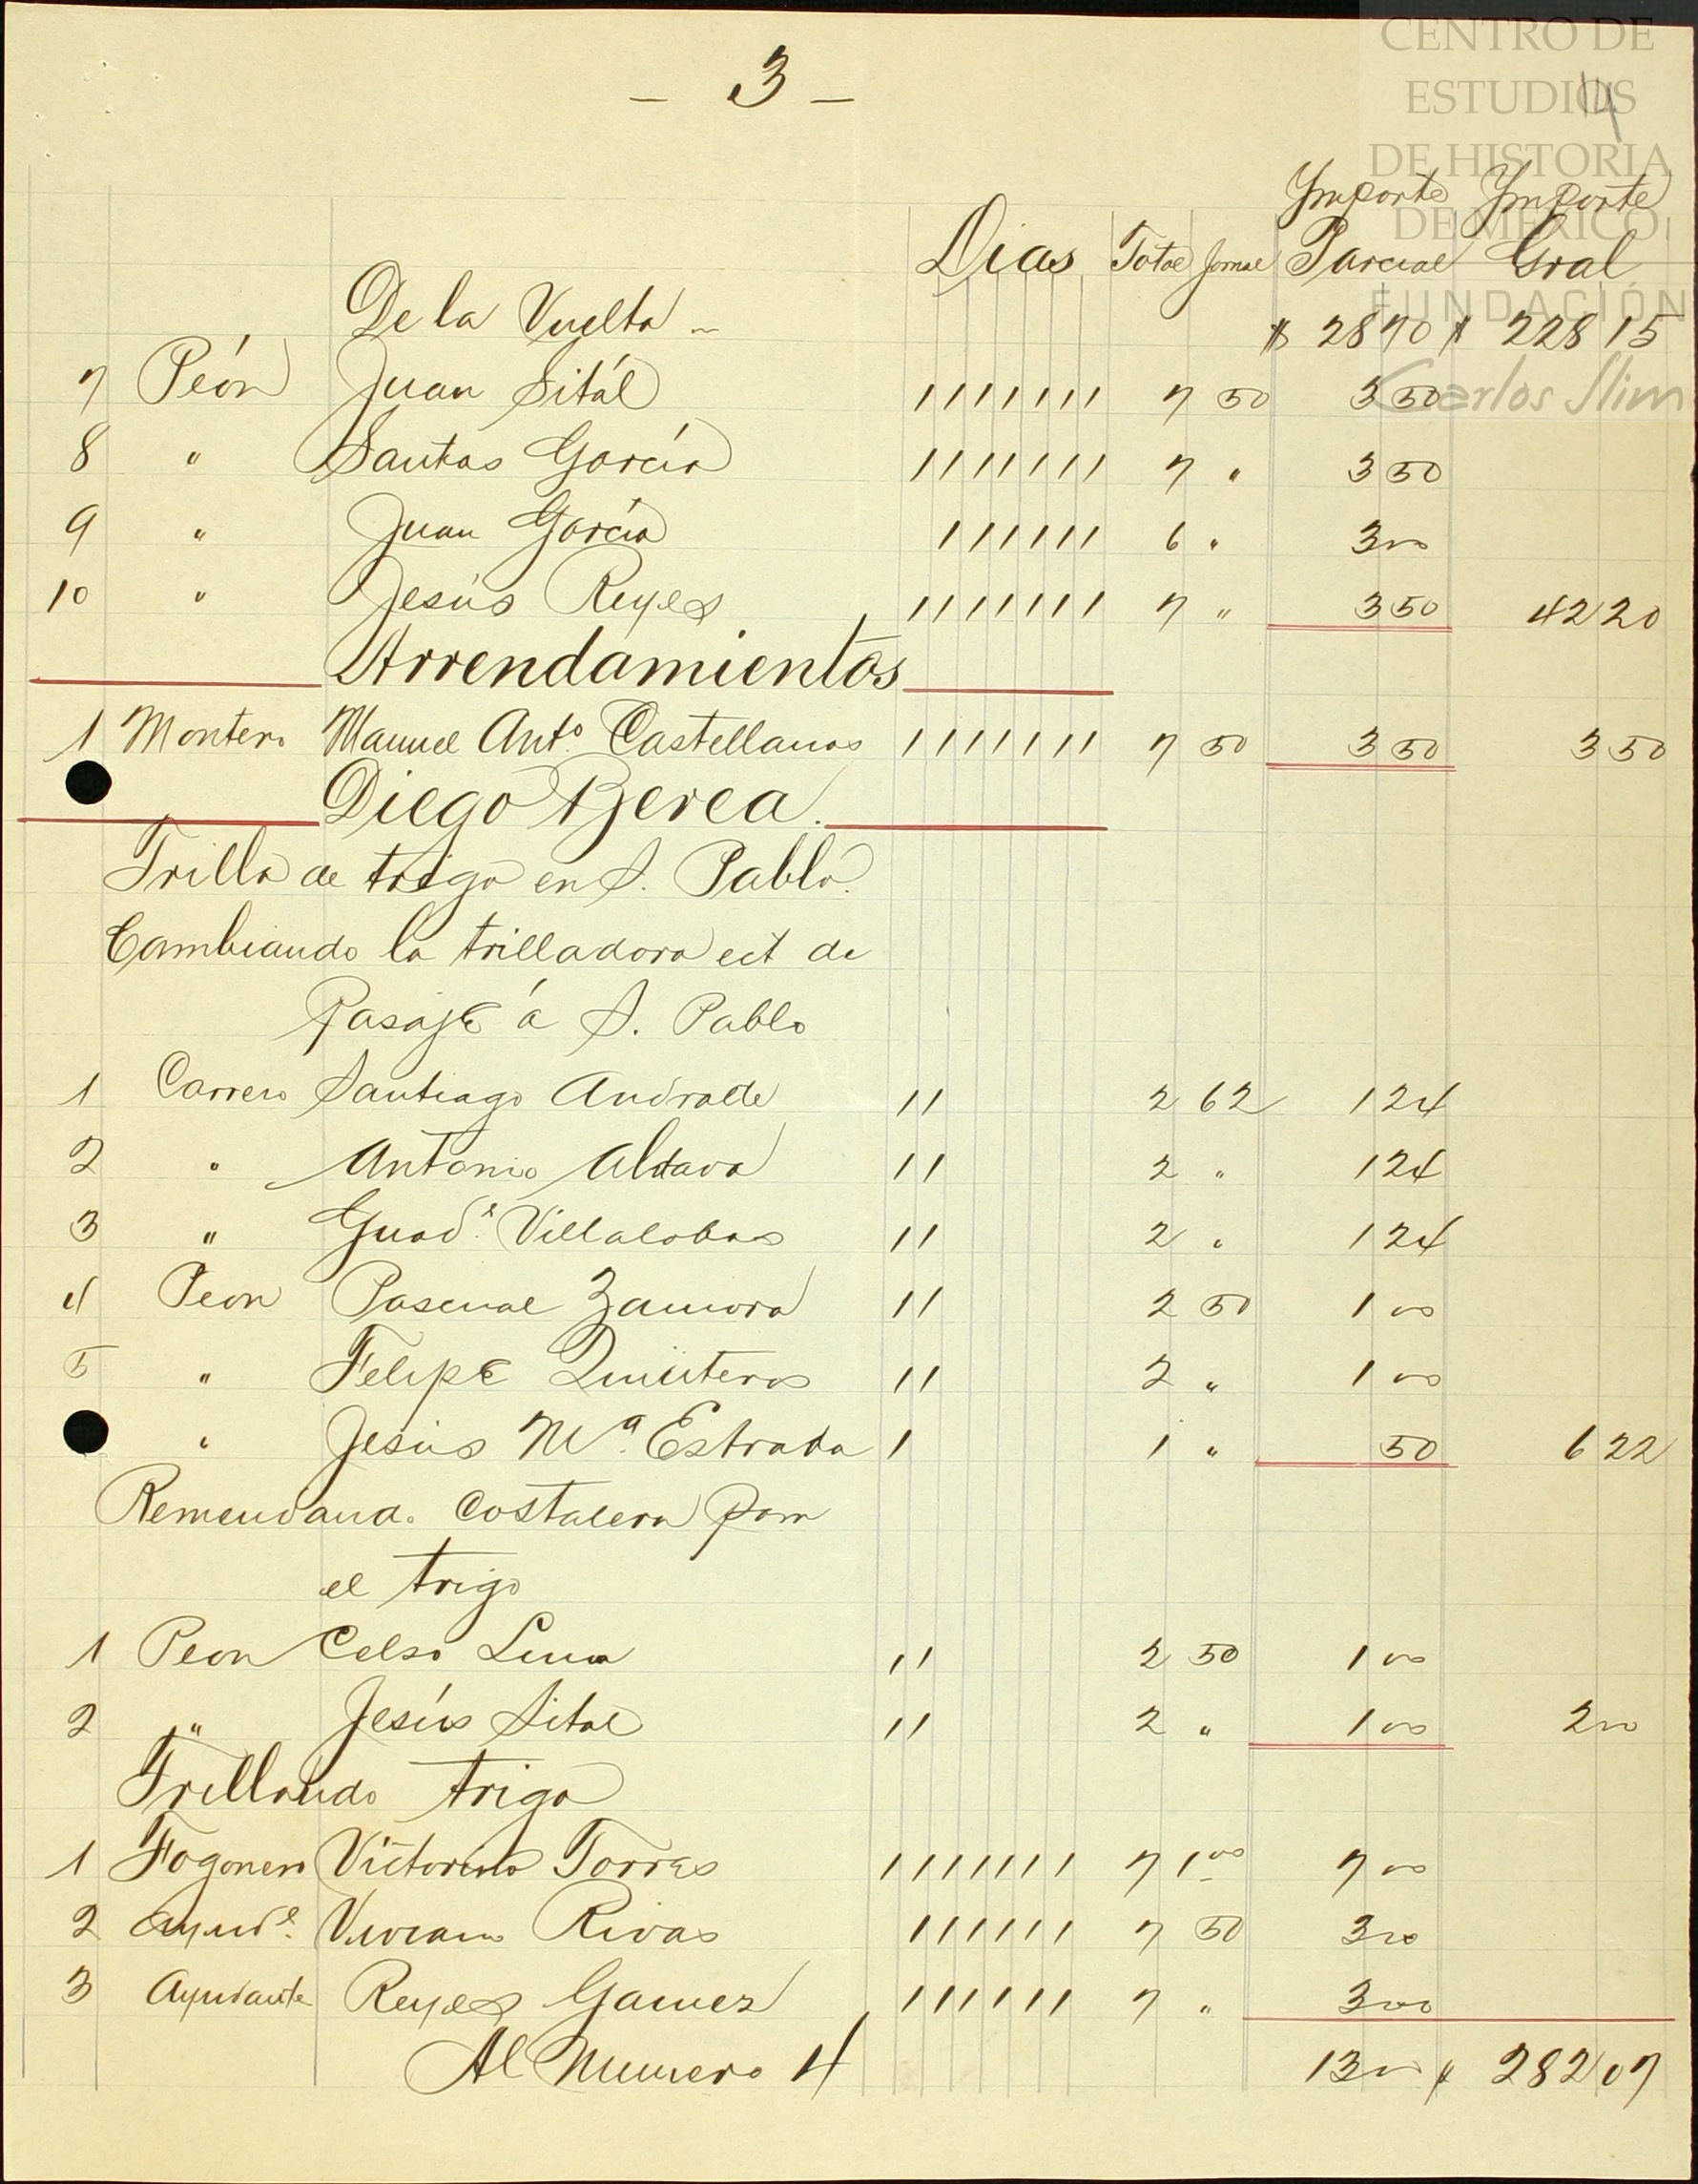 - 3 -
14
CENTRO DE
ESTUDIOS
DE HISTORIA
DE MÉXICO
FUNDACIÓN
Carlos Slim
Dias Total Jornal Ymporte Parcial Ymporte Gral
De la Vuelta - $ 28 70 $ 228 15
7 Peón Juan Sitál 1111111 7 50 3 50
8 " Santos García 1111111 7 " 3 50
9 " Juan García 111111 6 " 3 00
10 " Jesús Reyes 1111111 7 " 3 50 42 20
Arrendamientos
1 Montero Manuel Anto. Castellanos 1111111 7 50 3 50 3 50
Diego Berea.
Trilla de trigo en S. Pablo.
Cambiando la trilladora ect de
Pasaje á S. Pablo
1 Carrero Santiago Andrade 11 2 62 1 24
2 " Antonio Aldava 11 2 " 1 24
3 " Guade. Villalobos 11 2 " 1 24
4 Peon Pascual Zamora 11 2 50 1 00
5 " Felipe Quinteros 11 2 " 1 00
" Jesús Ma. Estrada 1 1 " 50 6 22
Remendando costalera para
el trigo
1 Peon Celso Luna 11 2 50 1 00
2 " Jesús Sital 11 2 " 1 00 2 00
Trillando trigo
1 Fogonero Victorino Torres 1111111 7 1 00 7 00
2 Ayude. Viviano Rivas 111111 7 50 3 00
3 Ayudante Reyes Gamez 111111 7 " 3 00
Al Numero 4 13 00 $ 282 07